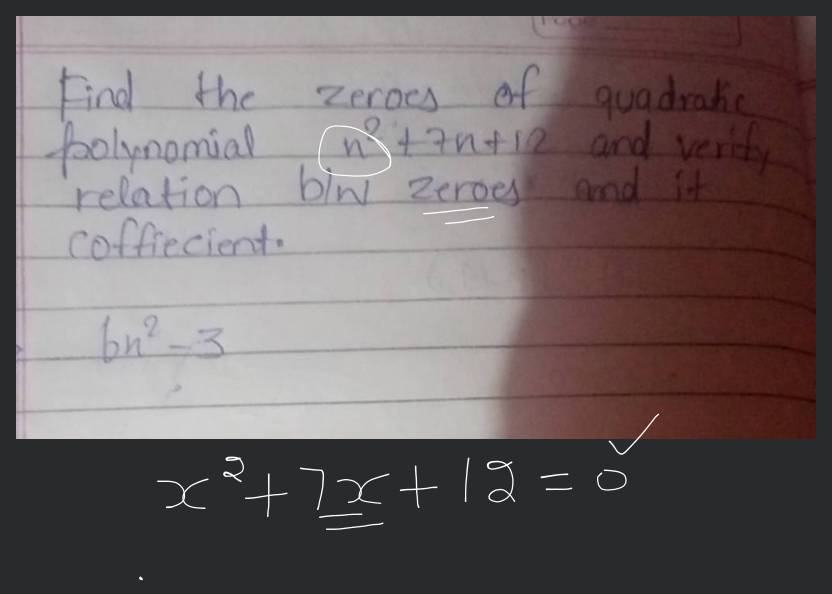 Find the zeroes of quadratic
polynomial x² + 7x + 12 and verify
relation b/w zeroes and it
coffiecient.
6x² - 3
x² + 7x + 12 = 0